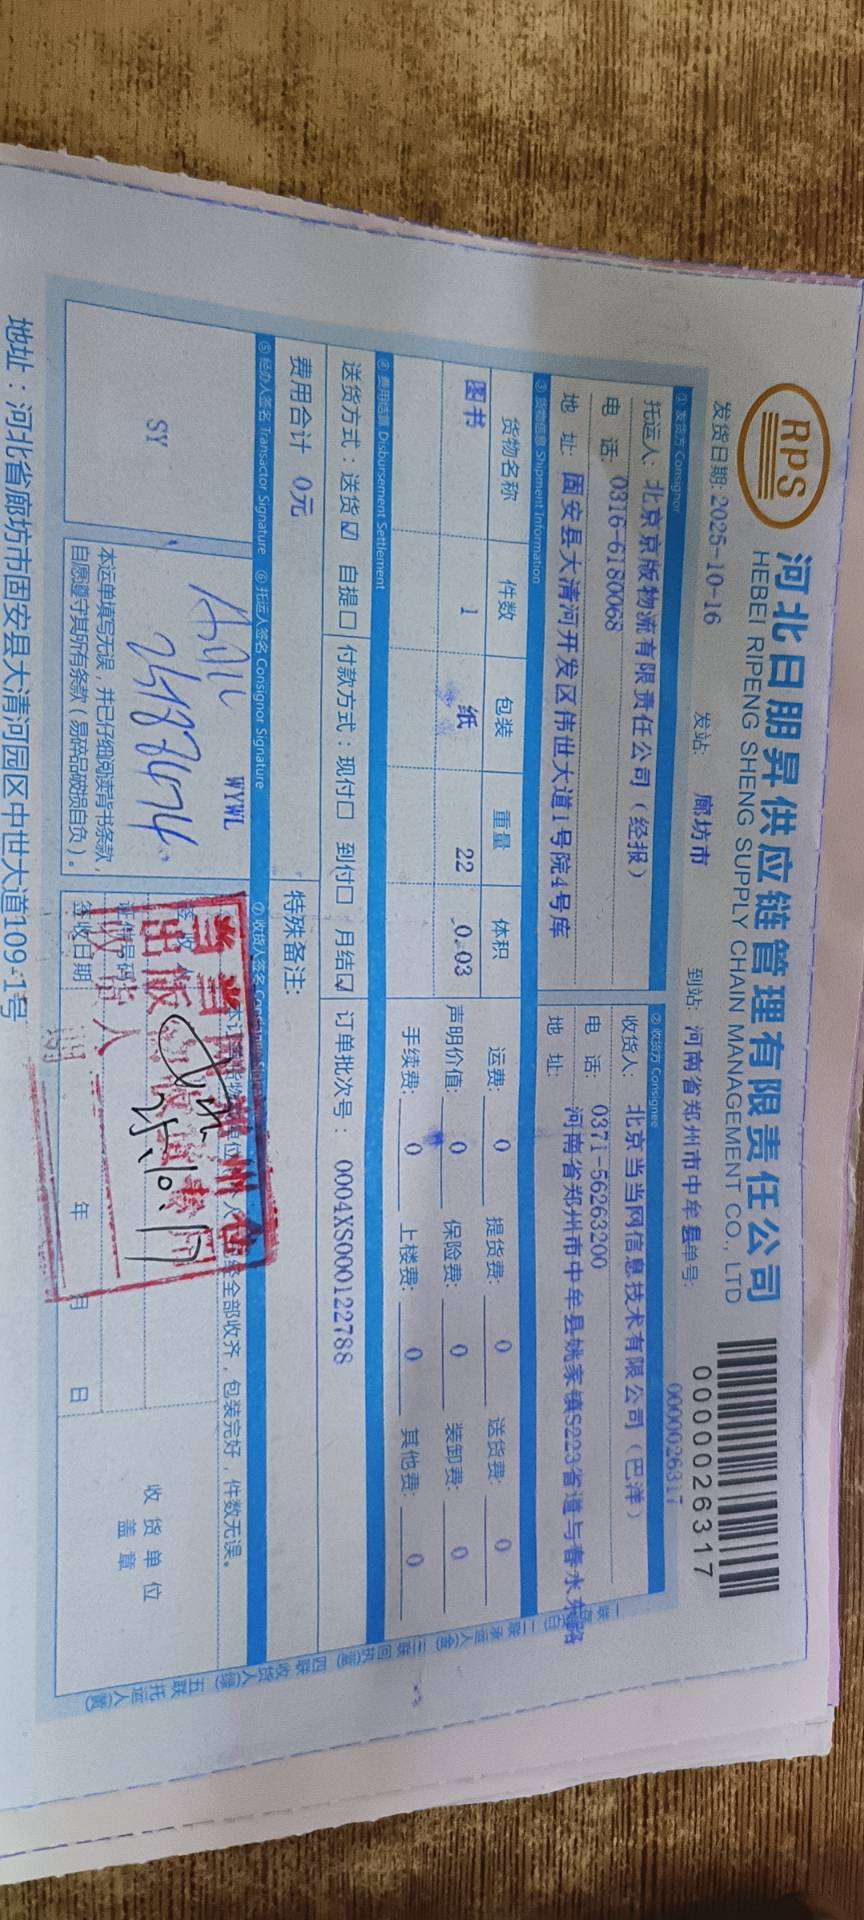 RPS
河北日朋昇供应链管理有限责任公司
HEBEI RIPENG SHENG SUPPLY CHAIN MANAGEMENT CO., LTD
0000026317
发货日期:2025-10-16 发站: 廊坊市 到站: 河南省郑州市中牟县 单号: 0000026317
① 发货方 Consignor
托运人: 北京京版物流有限责任公司（经报）
电 话: 0316-6180068
地 址: 固安县大清河开发区伟世大道1号院4号库
② 收货方 Consignee
收货人: 北京当当网信息技术有限公司（巴洋）
电 话: 0371-56263200
地 址: 河南省郑州市中牟县姚家镇S223省道与春水东路
③ 货物信息 Shipment Information
货物名称 件数 包装 重量 体积
图书 1 纸 22 0.03
运费: 0 提货费: 0 送货费: 0
声明价值: 0 保险费: 0 装卸费: 0
手续费: 0 上楼费: 0 其他费: 0
④ 费用结算 Disbursement Settlement
送货方式：送货☑ 自提□ 付款方式：现付□ 到付□ 月结☑ 订单批次号： 0004XS000122788
费用合计 0元 特殊备注:
⑤ 经办人签名 Transactor Signature ⑥ 托运人签名 Consignor Signature ⑦ 收货人签名
SY
WYWL
本运单填写无误，并已仔细阅读背书条款，
自愿遵守其所有条款（易碎品破损自负）。
全部收齐，包装完好，件数无误。
签收日期 年 月 日
收货单位
盖章
当当
出版
收货人
一联 二联承运人(金) 三联回执(蓝) 四联收货人(绿) 五联托运人(黄)
地址：河北省廊坊市固安县大清河园区中世大道109-1号